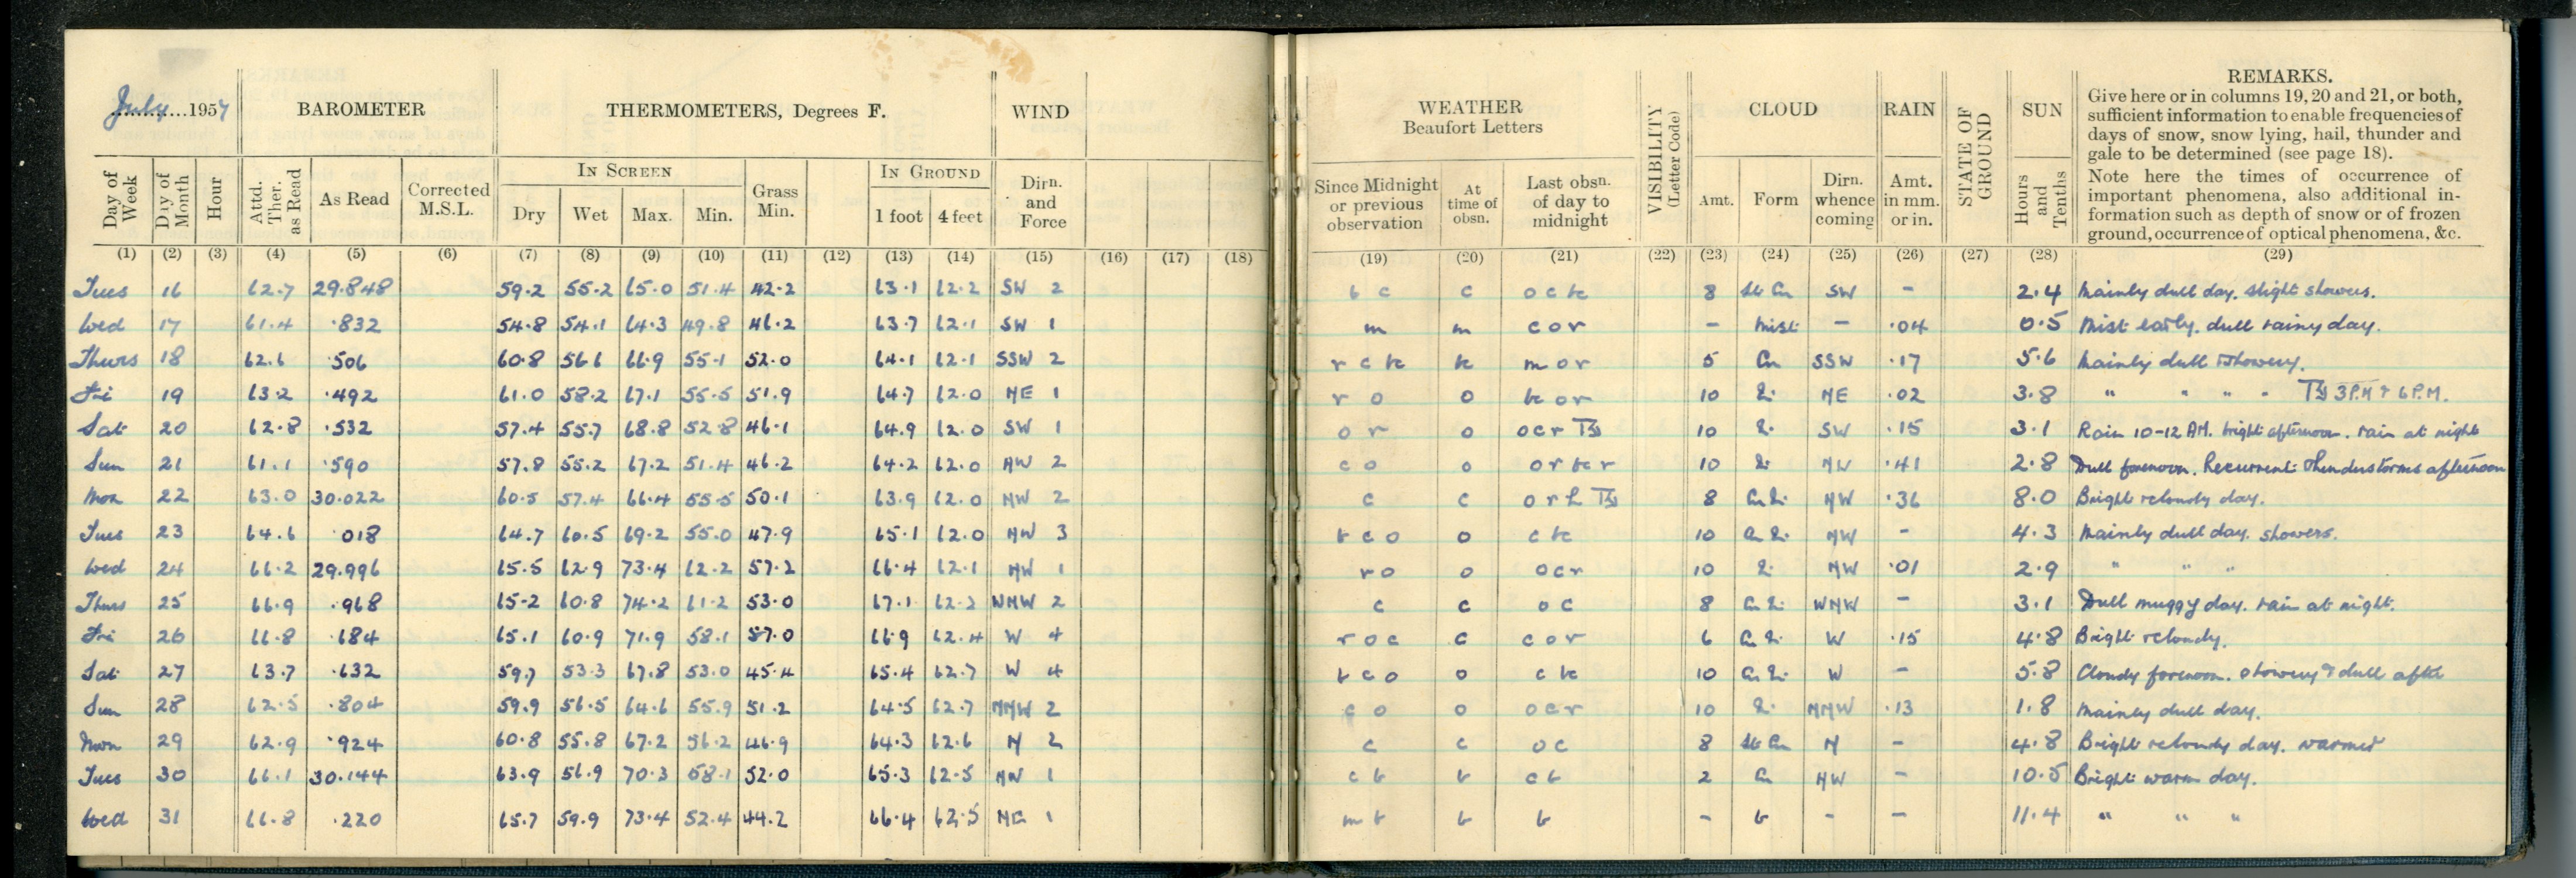 July 1957 BAROMETER THERMOMETERS, Degrees F. WIND
Day of Week Day of Month Hour Attd. Ther. as Read As Read Corrected M.S.L. IN SCREEN Dry Wet Max. Min. Grass Min. IN GROUND 1 foot 4 feet Dirn. and Force
(1) (2) (3) (4) (5) (6) (7) (8) (9) (10) (11) (12) (13) (14) (15) (16) (17) (18)
Tues 16 62.7 29.848 59.2 55.2 65.0 51.4 42.2 63.1 62.2 SW 2
Wed 17 61.4 .832 54.8 54.1 64.3 49.8 46.2 63.7 62.1 SW 1
Thurs 18 62.6 .506 60.8 56.1 66.9 55.1 52.0 64.1 62.1 SSW 2
Fri 19 63.2 .492 61.0 58.2 67.1 55.5 51.9 64.7 62.0 NE 1
Sat 20 62.8 .532 57.4 55.7 68.8 52.8 46.1 64.9 62.0 SW 1
Sun 21 61.1 .590 57.8 55.2 67.2 51.4 46.2 64.2 62.0 NW 2
Mon 22 63.0 30.022 60.5 57.4 66.4 55.5 50.1 63.9 62.0 NW 2
Tues 23 64.6 .018 64.7 60.5 69.2 55.0 47.9 65.1 62.0 NW 3
Wed 24 66.2 29.996 65.5 62.9 73.4 62.2 57.2 66.4 62.1 NW 1
Thurs 25 66.9 .968 65.2 60.8 74.2 61.2 53.0 67.1 62.2 WNW 2
Fri 26 66.8 .684 65.1 60.9 71.9 58.1 57.0 66.9 62.4 W 4
Sat 27 63.7 .632 59.7 53.3 67.8 53.0 45.4 65.4 62.7 W 4
Sun 28 62.5 .804 59.9 56.5 64.6 55.9 51.2 64.5 62.7 NNW 2
Mon 29 62.9 .924 60.8 55.8 67.2 56.2 46.9 64.3 62.6 N 2
Tues 30 66.1 30.144 63.9 56.9 70.3 58.1 52.0 65.3 62.5 NW 1
Wed 31 66.8 .220 65.7 59.9 73.4 52.4 44.2 66.4 62.5 NE 1
WEATHER Beaufort Letters VISIBILITY (Letter Code) CLOUD RAIN STATE OF GROUND SUN REMARKS.
Give here or in columns 19, 20 and 21, or both,
sufficient information to enable frequencies of
days of snow, snow lying, hail, thunder and
gale to be determined (see page 18).
Note here the times of occurrence of
important phenomena, also additional in-
formation such as depth of snow or of frozen
ground, occurrence of optical phenomena, &c.
Since Midnight or previous observation At time of obsn. Last obsn. of day to midnight Amt. Form Dirn. whence coming Amt. in mm. or in. Hours and Tenths
(19) (20) (21) (22) (23) (24) (25) (26) (27) (28) (29)
b c c o c bc 8 St Cu SW - 2.4 Mainly dull day. Slight showers.
m m c o r - Mist - .04 0.5 Mist early. dull rainy day.
r c bc bc m o r 5 Cu SSW .17 5.6 Mainly dull & showery.
r o o bc o r 10 NE .02 3.8 " " " " 3 P.M & 6 P.M.
o r o o c r 10 SW .15 3.1 Rain 10-12 AM. bright afternoon. rain at night
c o o o r bc r 10 NW .41 2.8 Dull forenoon. Recurrent Thunderstorms afternoon
c c o r 8 Cu NW .36 8.0 Bright & cloudy day.
b c o o c bc 10 Cu NW - 4.3 Mainly dull day. showers.
r o o o c r 10 NW .01 2.9 " " "
c c o c 8 Cu WNW - 3.1 Dull muggy day. rain at night.
r o c c c o r 6 Cu W .15 4.8 Bright & cloudy.
b c o o c bc 10 Cu W - 5.8 Cloudy forenoon. showery & dull after
c o o o c r 10 NNW .13 1.8 Mainly dull day.
c c o c 8 St Cu N - 4.8 Bright & cloudy day. warmer
c b b c b 2 Cu NW - 10.5 Bright warm day.
m b b b - b - - 11.4 " " "